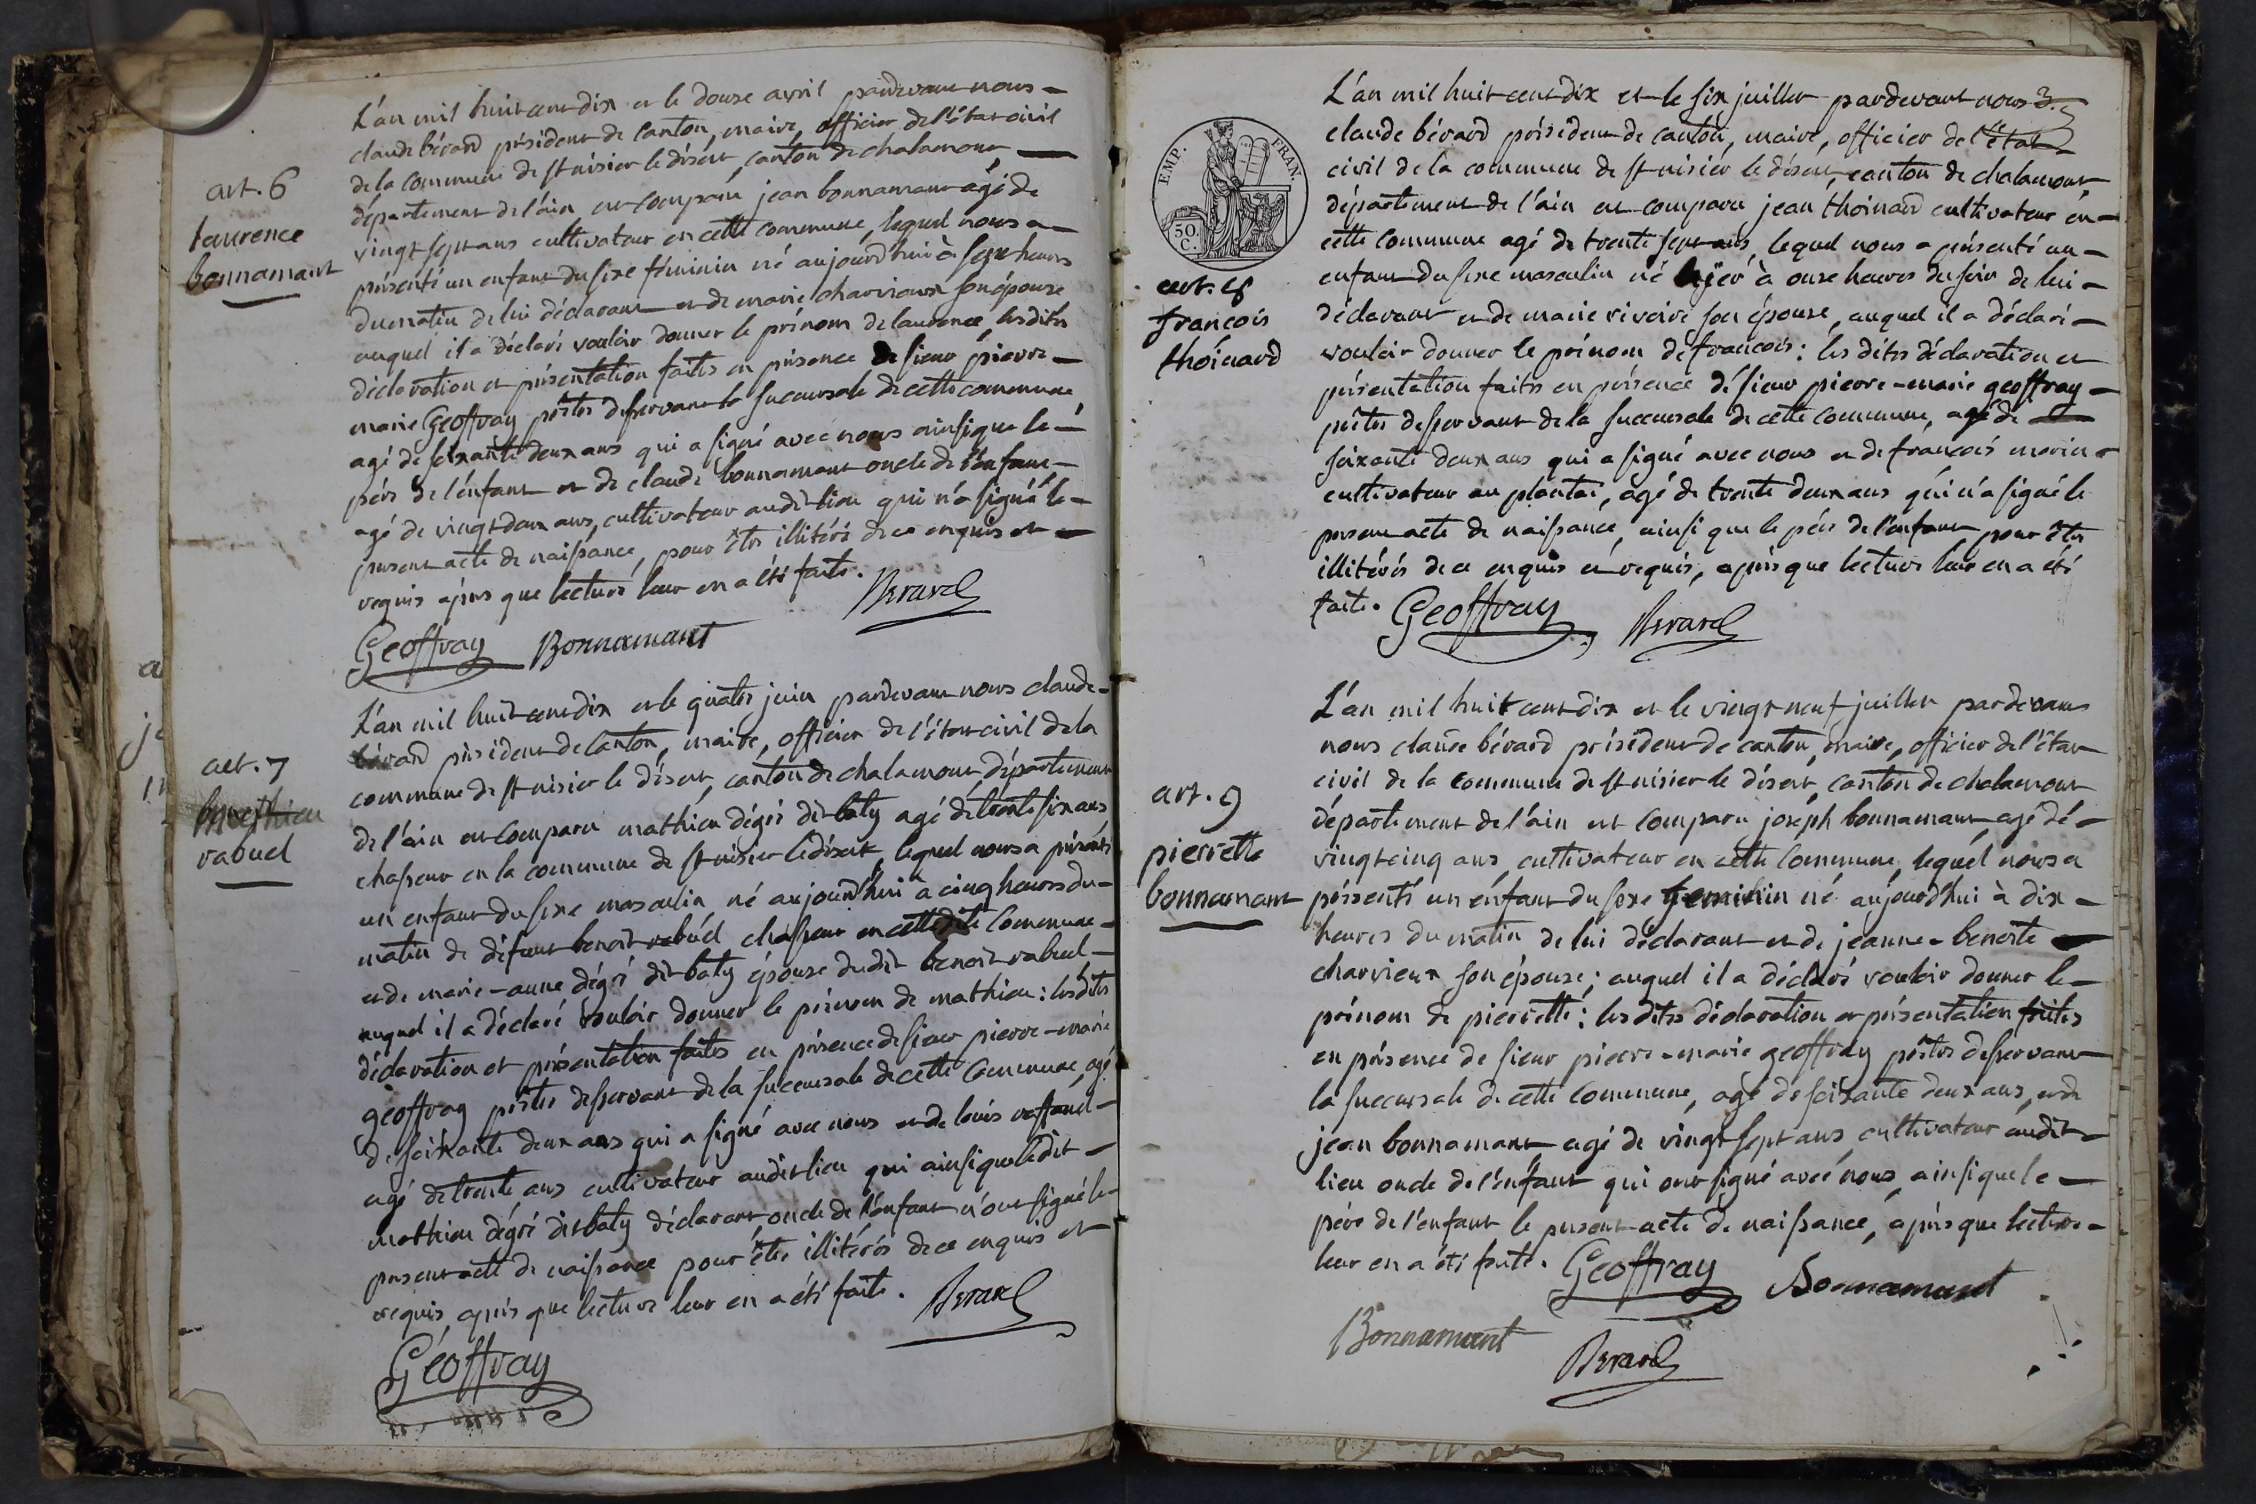 art. 6
laurence
bonnamant
L'an mil huit cent dix et le douze avril pardevant nous
claude bérard président de canton, maire, officier de l'état civil
de la commune de st nisier le désert, canton de chalamont,
département de l'ain est comparu jean bonnamant agé de
vingt sept ans cultivateur en cette commune, lequel nous a
présenté un enfant du sixe féminin né aujourd'hui à sept heures
du matin de lui déclarant et de marie charvieux son épouse
auquel il a déclaré vouloir donner le prénom de laurence, les dites
déclaration et présentation faites en présence de sieur pierre
marie Geoffray prêtre desservant la succursale de cette commune,
agé de soixante deux ans qui a signé avec nous ainsi que le
père de l'enfant et de claude bonnamant oncle de l'enfant
agé de vingt deux ans, cultivateur audit lieu qui n'a signé le
présent acte de naissance, pour être illitéré de ce enquis et
requis après que lecture leur en a été faite.
Berard
Geoffray Bonnamant
art. 7
mathieu
rabuel
L'an mil huit cent dix et le quatre juin pardevant nous claude
bérard président de canton, maire, officier de l'état civil de la
commune de st nisier le désert, canton de chalamont département
de l'ain est comparu mathieu dégré dit baty agé de trente six ans
chasseur en la commune de st nisier le désert, lequel nous a présenté
un enfant du sixe masculin né aujourd'hui à cinq heures du
matin de défunt benoit rabuel chasseur en cette dite commune
et de marie-anne dégré dit baty épouse dudit benoit rabuel
auquel il a déclaré vouloir donner le prénom de mathieu : les dites
déclaration et présentation faites en présence de sieur pierre-marie
geoffray prêtre desservant de la succursale de cette commune, agé
de soixante deux ans qui a signé avec nous et de louis
agé de trente ans cultivateur audit lieu qui ainsi que ledit
mathieu dégré dit baty déclarant oncle de l'enfant n'ont signé le
présent acte de naissance pour être illitérés de ce enquis et
requis, après que lecture leur en a été faite. Berard
Geoffray
3.
EMP. FRAN.
50. C.
art. 8
françois
thoinard
L'an mil huit cent dix et le six juillet pardevant nous
claude bérard président de canton, maire, officier de l'état
civil de la commune de st nisier le désert, canton de chalamont,
département de l'ain est comparu jean thoinard cultivateur en
cette commune agé de trente sept ans, lequel nous a présenté un
enfant du sixe masculin né hyer à onze heures du soir de lui
déclarant et de marie rivoire son épouse, auquel il a déclaré
vouloir donner le prénom de francois : les dites déclaration et
présentation faites en présence de sieur pierre-marie geoffray
prêtre desservant de la succursale de cette commune, agé de
soixante deux ans qui a signé avec nous et de françois morin
cultivateur au plantai, agé de trente deux ans qui n'a signé le
présent acte de naissance, ainsi que le père de l'enfant pour être
illitérés de ce enquis et requis, après que lecture leur en a été
faite. Geoffray Berard
art. 9
pierrette
bonnamant
L'an mil huit cent dix et le vingt neuf juillet pardevant
nous claude bérard président de canton, maire, officier de l'état
civil de la commune de st nisier le désert, canton de chalamont
département de l'ain est comparu joseph bonnamant agé de
vingt cinq ans, cultivateur en cette commune, lequel nous a
présenté un enfant du sexe feminin né aujourd'hui à dix
heures du matin de lui déclarant et de jeanne-benoite
charvieux son épouse ; auquel il a déclaré vouloir donner le
prénom de pierrette : les dites déclaration et présentation faites
en présence de sieur pierre-marie geoffray prêtre desservant
la succursale de cette commune, agé de soixante deux ans, et de
jean bonnamant agé de vingt sept ans cultivateur audit
lieu oncle de l'enfant qui ont signé avec nous, ainsi que le
père de l'enfant le présent acte de naissance, après que lecture
leur en a été faite. Geoffray Bonnamant
Bonnamant
Berard